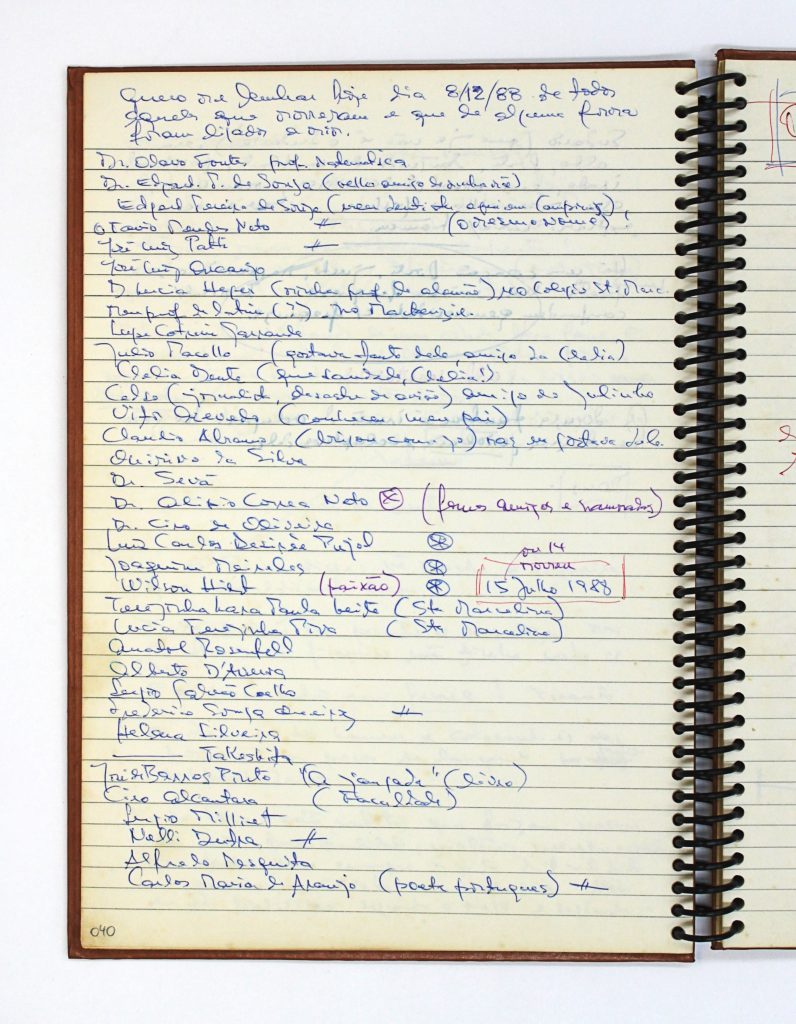 Quero me lembrar hoje dia 8/12/88 de todos
aqueles que morreram e que de alguma forma
foram ligados a mim.
Dr. Olavo Fontes prof. Matemática
Dr. Edgard P. de Souza (velho amigo de
Edgard Pereira de Souza (meu dentista aqui em Campinas)
Otavio Mendes Neto # (O mesmo nome) !
José Luiz Patti #
José Luiz
D. Lucia (minha prof. de alemão) no Colegio Sta. Marc.
Meu prof. de latim (?) no Mackenzie.
Lupe Cotrim Garaude
Julio (gostava tanto dele, amigo da Clelia)
Clelia (que saudade, Clelia!)
Celso (jornalista, desastre de avião) amigo do Julinho
Vitor Azevedo (conheceu meu pai)
Claudio Abramo (brigou comigo) mas eu gostava dele.
Quirino da Silva
Dr. Sevá
Dr. Alipio Correa Neto ⊗ (fomos amigos e namorados)
Dr. Ciro de Oliveira
Luiz Carlos Pujol ⊗
ou 14
Joaquim Meirelles ⊗ morreu
Wilson (paixão) ⊗ 15 Julho 1988
Terezinha Lara Paula Leite (Sta Marcelina)
Lucia Terezinha Piva (Sta Marcelina)
Anatol Rosenfeld
Alberto D'Aversa
Sergio Galvão Coelho
Frederico Souza Queiroz #
Helena Silveira
——— Takeshita
José Barros Pinto "A jangada" (livro)
Ciro Alcantara (Faculdade)
Sergio Milliet
Nelli Dutra #
Alfredo Mesquita
Carlos Maria de Araujo (poeta portugues) #
040